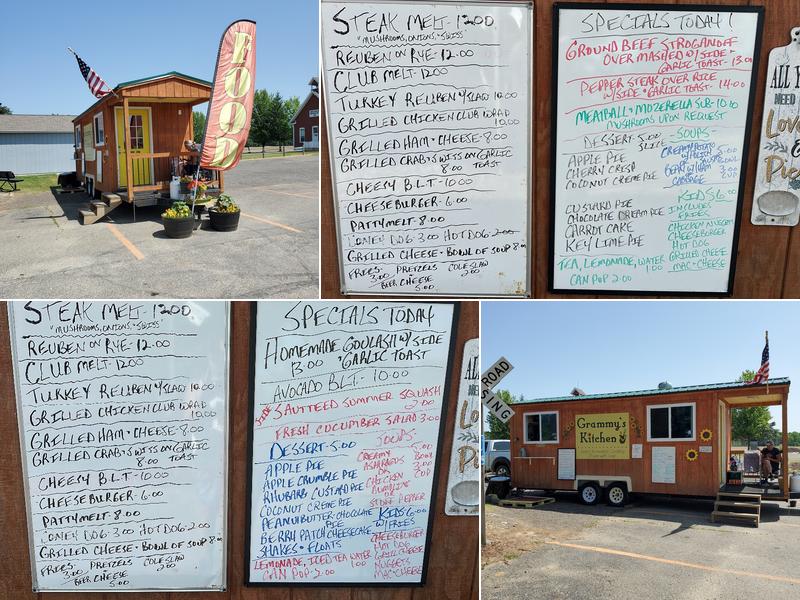 FOOD
STEAK MELT - 12.00
"MUSHROOMS, ONIONS, SWISS"
REUBEN ON RYE - 12.00
CLUB MELT - 12.00
TURKEY REUBEN W/SLAW 10.00
GRILLED CHICKEN CLUB WRAP
10.00
GRILLED HAM + CHEESE - 8.00
GRILLED CRAB + SWISS ON GARLIC
8.00 TOAST
CHEESY B.L.T - 10.00
CHEESEBURGER - 6.00
PATTYMELT - 8.00
CONEY DOG - 3.00 HOT DOG - 2.00
GRILLED CHEESE + BOWL OF SOUP 8.00
FRIES - PRETZELS COLESLAW
3.00 BEER CHEESE 2.00
5.00
SPECIALS TODAY!
GROUND BEEF STROGANOFF
OVER MASHED W/SIDE +
GARLIC TOAST - 13.00
PEPPER STEAK OVER RICE
W/SIDE + GARLIC TOAST - 14.00
MEATBALL + MOZERELLA SUB - 10.00
MUSHROOMS UPON REQUEST
DESSERT - 5.00 SLICE
APPLE PIE
CHERRY CRISP
COCONUT CREME PIE
CUSTARD PIE
CHOCOLATE CREAM PIE
CARROT CAKE
KEY LIME PIE
- SOUPS -
CREAMY POTATO
5.00
BOWL
3.00
CUP
KIDS 6.00
INCLUDES
FRIES
CHICKEN NUGGETS
CHEESEBURGER
HOT DOG
GRILLED CHEESE
MAC + CHEESE
TEA, LEMONADE, WATER
1.00
CAN POP 2.00
ALL
NEED
Love
Pie
STEAK MELT - 12.00
"MUSHROOMS, ONIONS, SWISS"
REUBEN ON RYE - 12.00
CLUB MELT - 12.00
TURKEY REUBEN W/SLAW 10.00
GRILLED CHICKEN CLUB WRAP
10.00
GRILLED HAM + CHEESE - 8.00
GRILLED CRAB + SWISS ON GARLIC
8.00 TOAST
CHEESY B.L.T - 10.00
CHEESEBURGER - 6.00
PATTYMELT - 8.00
CONEY DOG - 3.00 HOT DOG - 2.00
GRILLED CHEESE + BOWL OF SOUP 8.00
FRIES - PRETZELS COLESLAW
3.00 BEER CHEESE 2.00
5.00
SPECIALS TODAY
HOMEMADE GOULASH W/SIDE
13.00 + GARLIC TOAST
AVOCADO B.L.T - 10.00
SIDE SAUTEED SUMMER SQUASH
2.00
FRESH CUCUMBER SALAD 3.00
DESSERT - 5.00
APPLE PIE
APPLE CRUMBLE PIE
RHUBARB CUSTARD PIE
COCONUT CREME PIE
PEANUTBUTTER - CHOCOLATE
PIE
BERRY PATCH CHEESECAKE
SHAKES + FLOATS
SOUPS
CREAMY
ASPARAGUS
OR
CHICKEN
DUMPLING
OR
STUFF PEPPER
5.00
BOWL
3.00
CUP
KIDS 6.00
W/FRIES
CHEESEBURGER
HOT DOG
GRILL CHEESE
NUGGETS
MAC + CHEESE
LEMONADE, ICED TEA WATER
1.00
CAN POP - 2.00
ROAD
SING
Grammy's
Kitchen